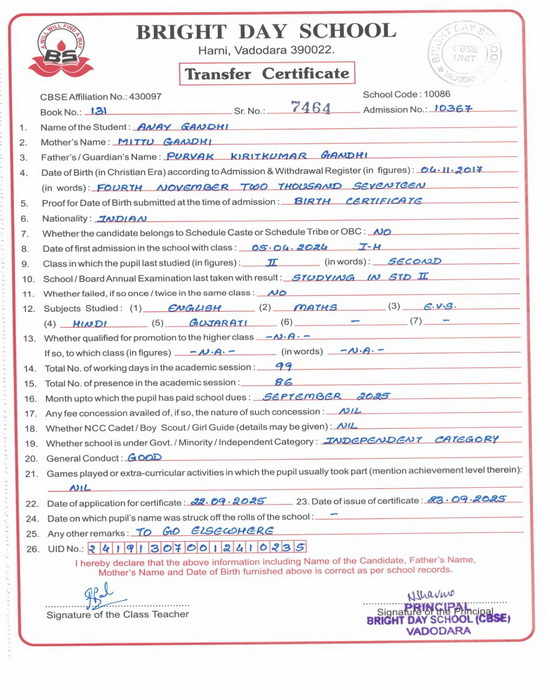 A WILL WILL FIND A WAY
BS
BRIGHT DAY SCHOOL
Harni, Vadodara 390022.
BRIGHT DAY SCHOOL
CBSE
UNIT
VADODARA
Transfer Certificate
CBSE Affiliation No.: 430097 School Code : 10086
Book No.: 131 Sr. No.: 7464 Admission No.: 10367
1. Name of the Student : ANAY GANDHI
2. Mother's Name : MITTU GANDHI
3. Father's / Guardian's Name : PURVAK KIRITKUMAR GANDHI
4. Date of Birth (in Christian Era) according to Admission & Withdrawal Register (in figures) : 04.11.2017
(in words) : FOURTH NOVEMBER TWO THOUSAND SEVENTEEN
5. Proof for Date of Birth submitted at the time of admission : BIRTH CERTIFICATE
6. Nationality : INDIAN
7. Whether the candidate belongs to Schedule Caste or Schedule Tribe or OBC : NO
8. Date of first admission in the school with class : 05.04.2024 I-H
9. Class in which the pupil last studied (in figures) : II (in words) : SECOND
10. School / Board Annual Examination last taken with result : STUDYING IN STD II
11. Whether failed, if so once / twice in the same class : NO
12. Subjects Studied : (1) ENGLISH (2) MATHS (3) E.V.S.
(4) HINDI (5) GUJARATI (6) - (7) -
13. Whether qualified for promotion to the higher class -N.A.-
If so, to which class (in figures) -N.A.- (in words) -N.A.-
14. Total No. of working days in the academic session : 99
15. Total No. of presence in the academic session : 86
16. Month upto which the pupil has paid school dues : SEPTEMBER 2025
17. Any fee concession availed of, if so, the nature of such concession : NIL
18. Whether NCC Cadet / Boy Scout / Girl Guide (details may be given) : NIL
19. Whether school is under Govt. / Minority / Independent Category : INDEPENDENT CATEGORY
20. General Conduct : GOOD
21. Games played or extra-curricular activities in which the pupil usually took part (mention achievement level therein) :
NIL
22. Date of application for certificate : 22.09.2025 23. Date of issue of certificate : 23.09.2025
24. Date on which pupil's name was struck off the rolls of the school : -
25. Any other remarks : TO GO ELSEWHERE
26. UID No.: 241913070012410235
I hereby declare that the above information including Name of the Candidate, Father's Name,
Mother's Name and Date of Birth furnished above is correct as per school records.
Signature of the Class Teacher Signature of the Principal
PRINCIPAL
BRIGHT DAY SCHOOL (CBSE)
VADODARA